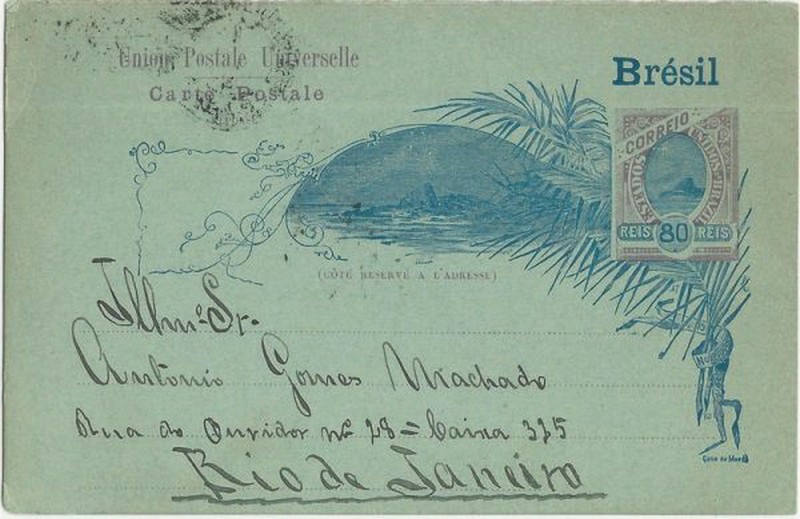 Union Postale Universelle
Carte Postale
Brésil
CORREIO
ESTADOS UNIDOS DO BRAZIL
REIS 80 REIS
(CÔTÉ RESERVÉ A L'ADRESSE)
Illmº Sr.
Antonio Gomes Machado
Rua do Ouvidor nº 28 = Caixa 335
Rio de Janeiro
Casa da Moeda